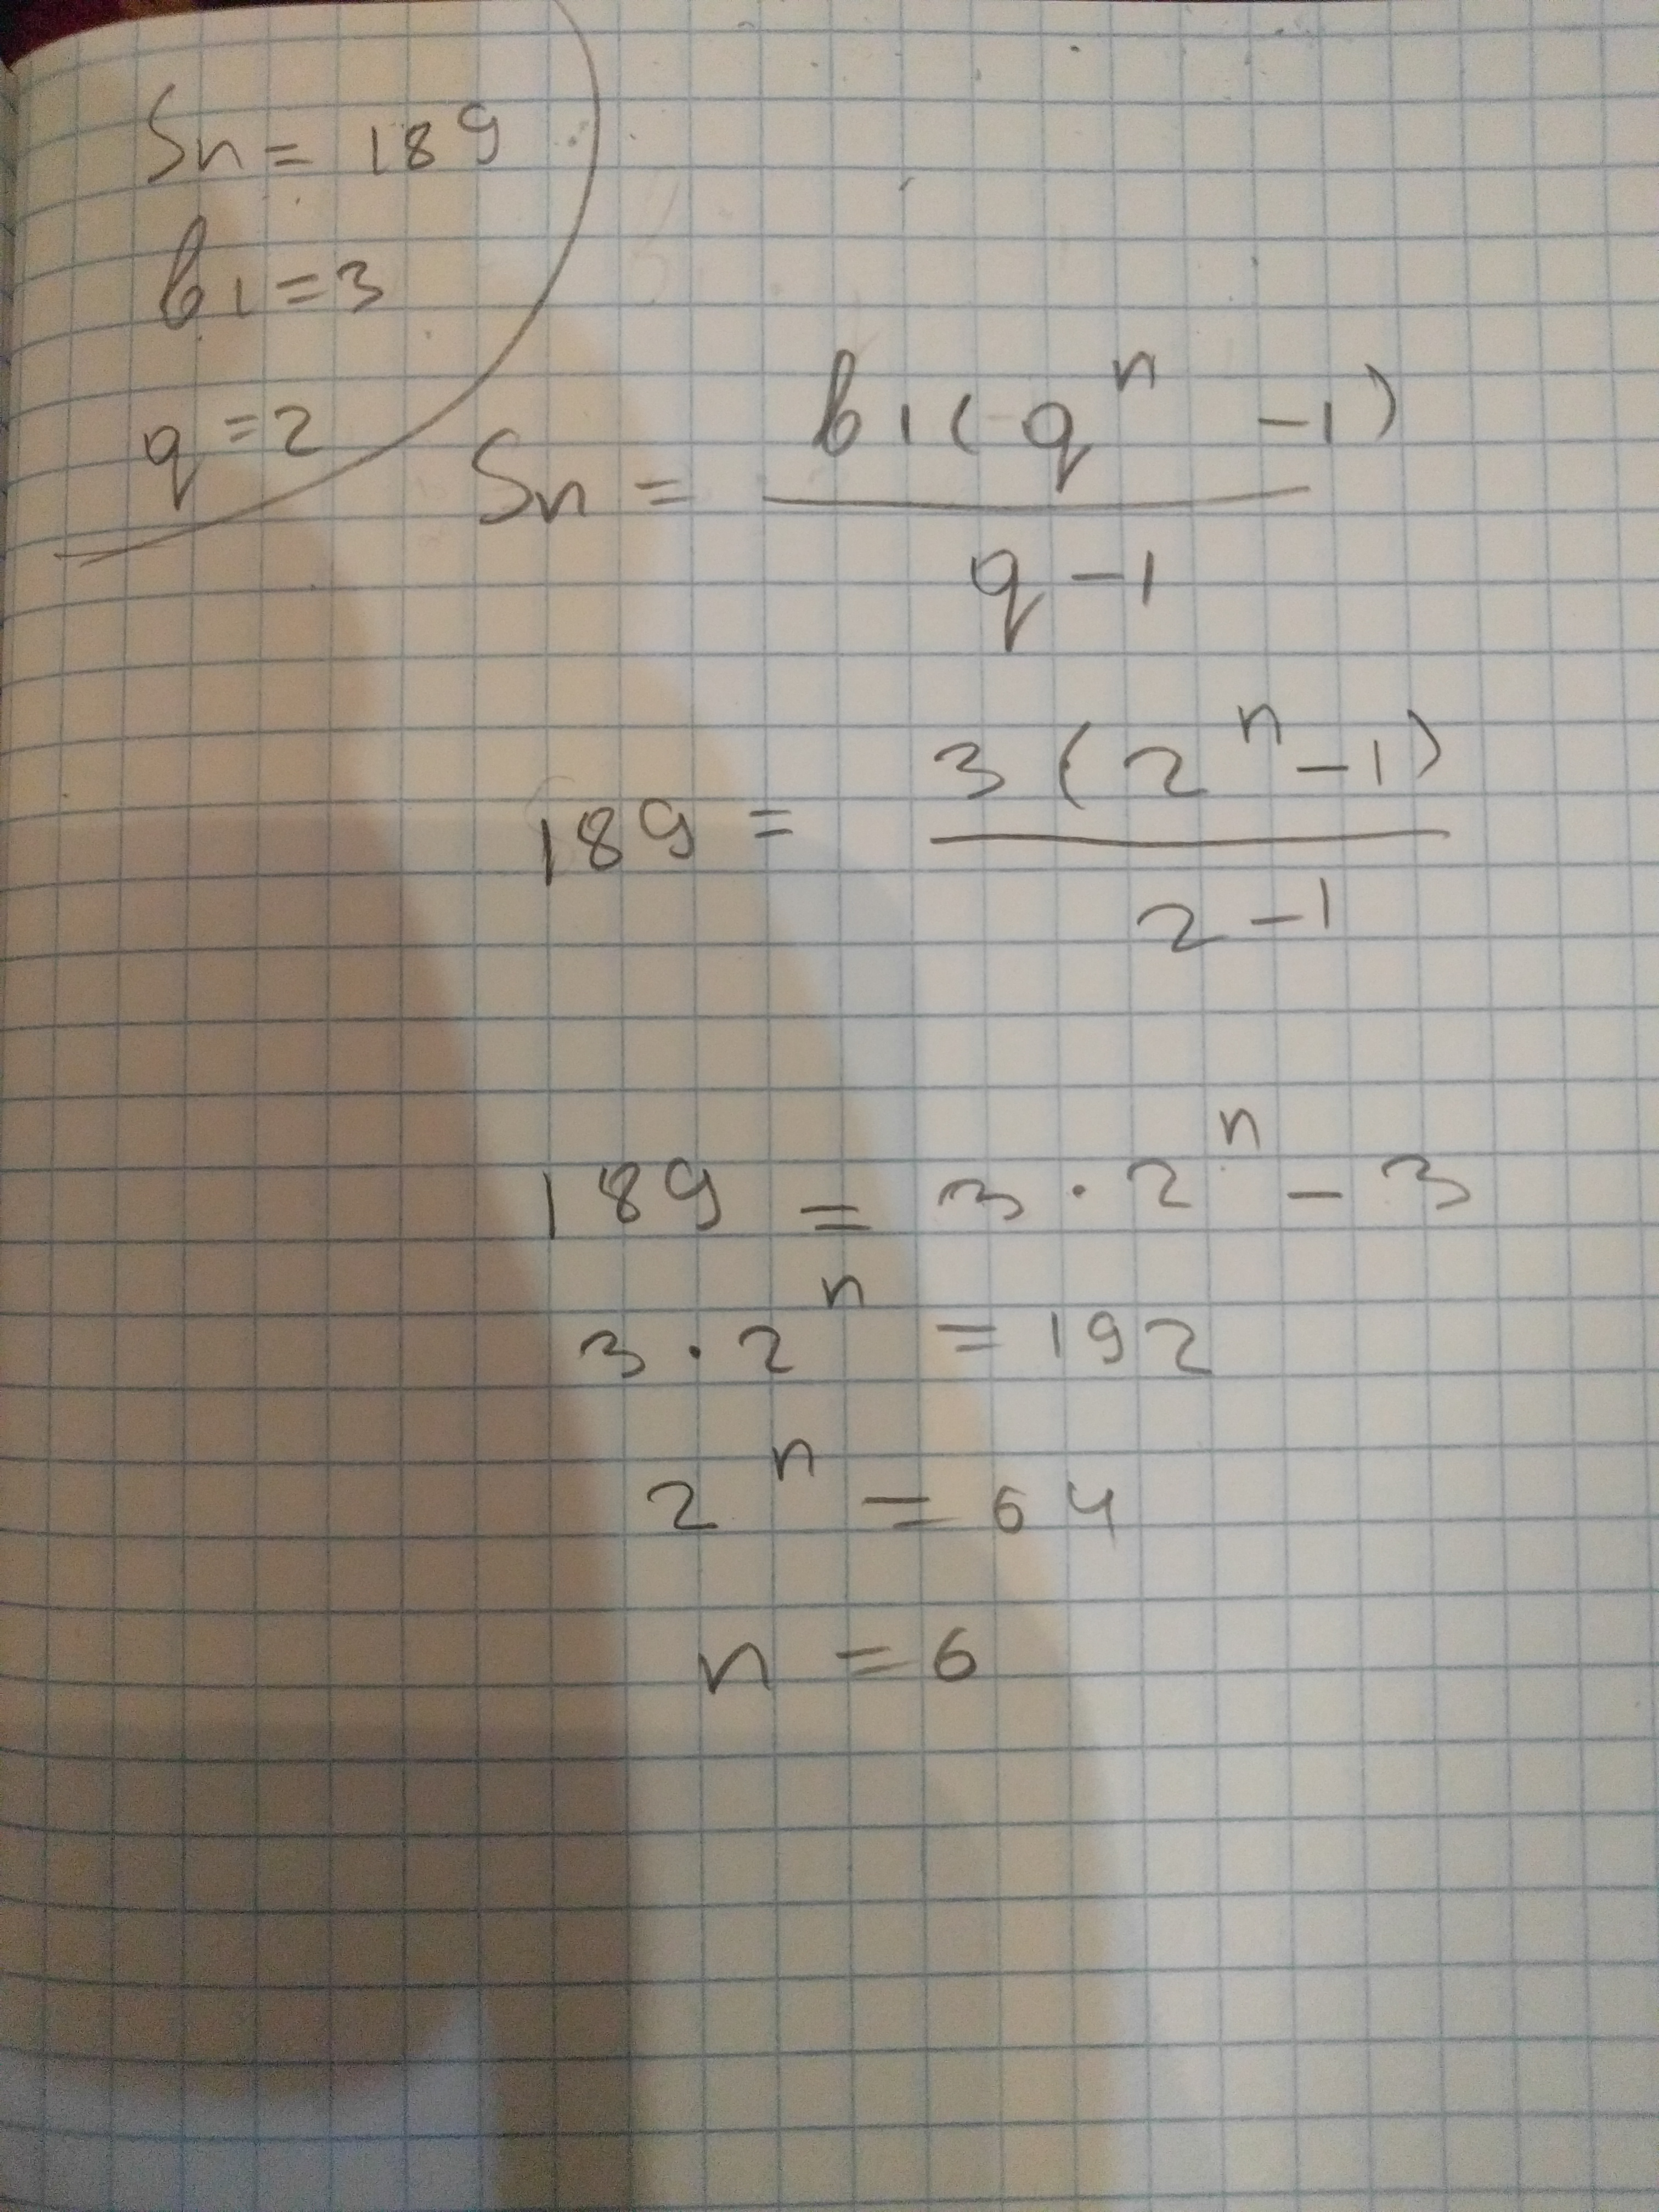 Sn = 189
b1 = 3
q = 2
Sn = b1(q^n - 1) / q - 1
189 = 3(2^n - 1) / 2 - 1
189 = 3 · 2^n - 3
3 · 2^n = 192
2^n = 64
n = 6